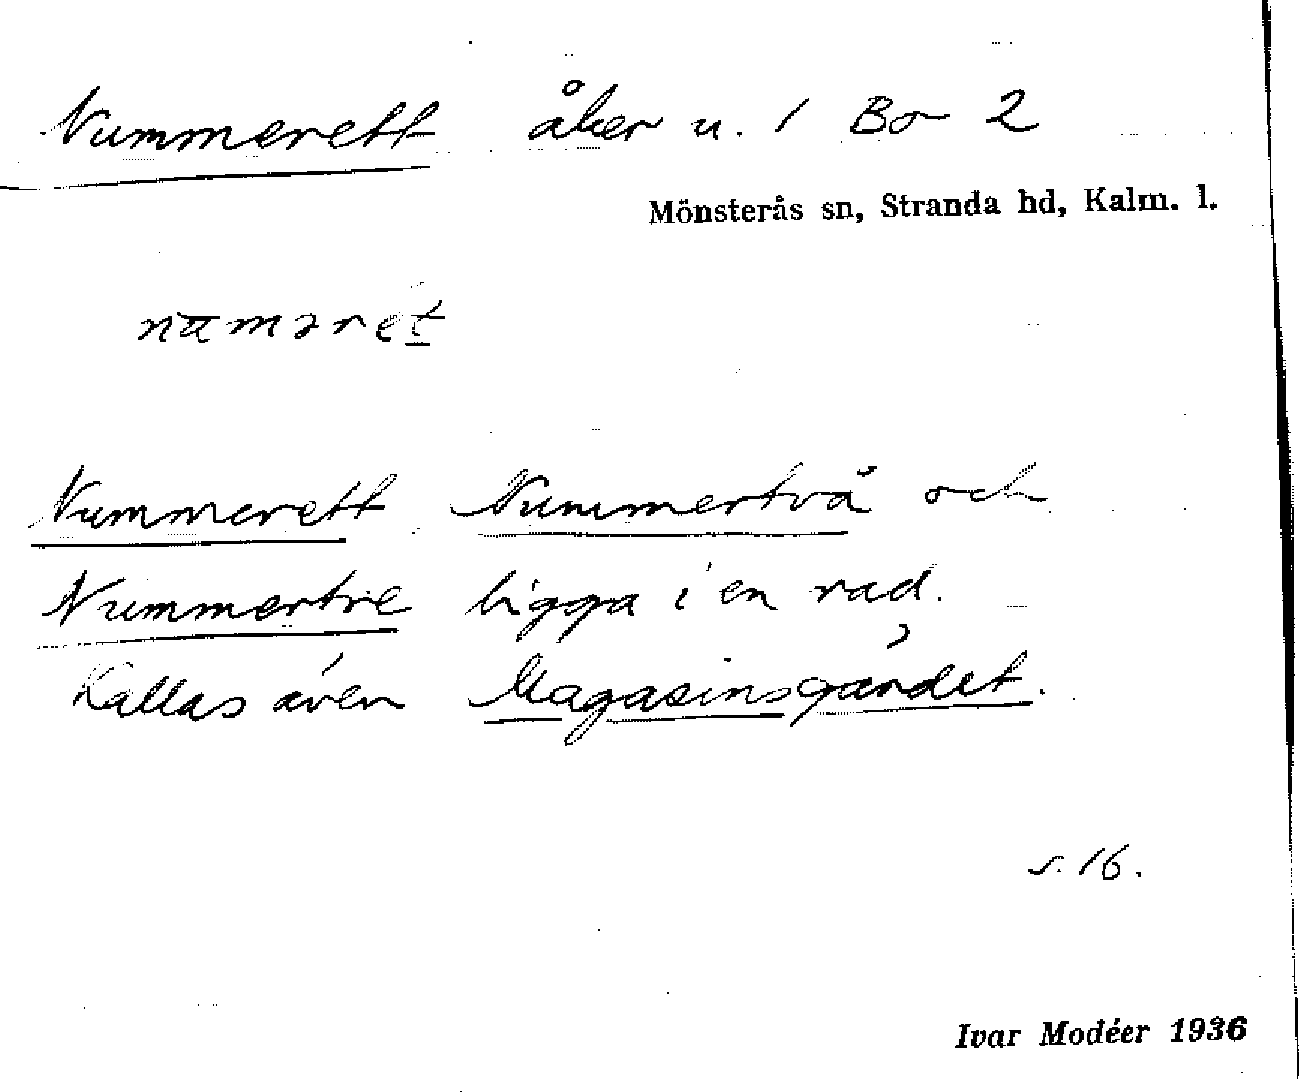 Nummerett åker u. 1 Bo 2
Mönsterås sn, Stranda hd, Kalm. l.
numəret
Nummerett Nummertvå och
Nummertre ligga i en rad.
Kallas även Magasinsgärdet.
s. 16.
Ivar Modéer 1936